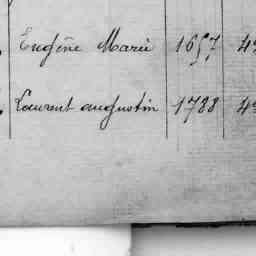 Eugène Marie 1657
Laurent augustin 1788